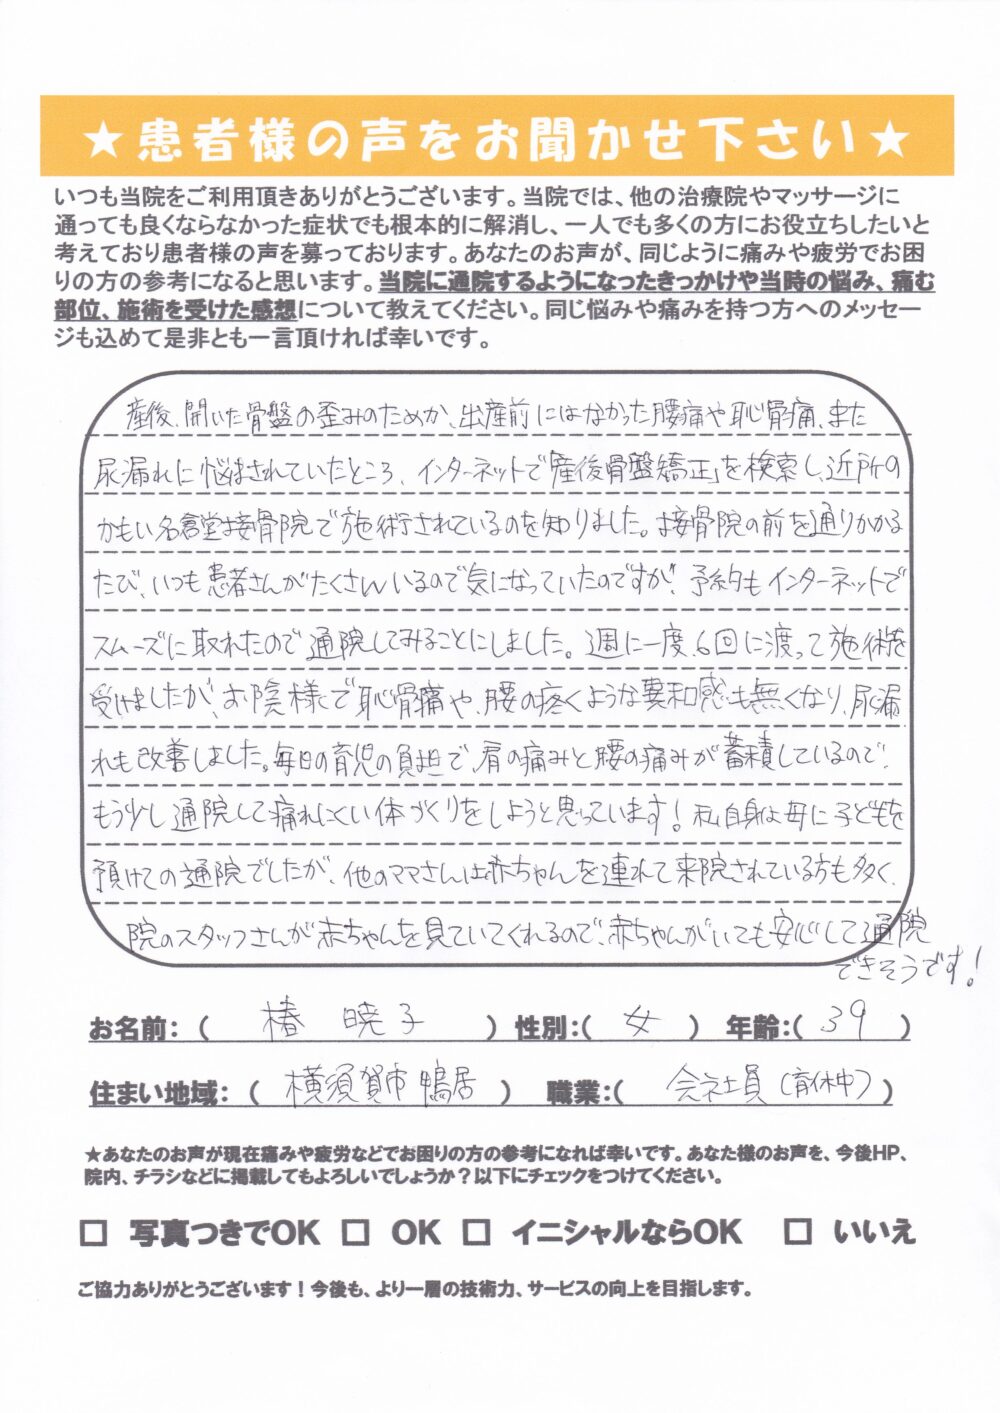 ★患者様の声をお聞かせ下さい★
いつも当院をご利用頂きありがとうございます。当院では、他の治療院やマッサージに
通っても良くならなかった症状でも根本的に解消し、一人でも多くの方にお役立ちしたいと
考えており患者様の声を募っております。あなたのお声が、同じように痛みや疲労でお困
りの方の参考になると思います。当院に通院するようになったきっかけや当時の悩み、痛む
部位、施術を受けた感想について教えてください。同じ悩みや痛みを持つ方へのメッセー
ジも込めて是非とも一言頂ければ幸いです。
産後、開いた骨盤の歪みのためか、出産前にはなかった腰痛や恥骨痛、また
尿漏れに悩まされていたところ、インターネットで「産後骨盤矯正」を検索し、近所の
かもい名倉堂接骨院で施術されているのを知りました。接骨院の前を通りかかる
たび、いつも患者さんがたくさんいるので気になっていたのですが、予約もインターネットで
スムーズに取れたので通院してみることにしました。週に一度、6回に渡って施術を
受けましたが、お陰様で恥骨痛や、腰の疼くような異和感も無くなり、尿漏
れも改善しました。毎日の育児の負担で、肩の痛みと腰の痛みが蓄積しているので、
もう少し通院して痛れにくい体づくりをしようと思っています！私自身は母に子どもを
預けての通院でしたが、他のママさんは赤ちゃんを連れて来院されている方も多く、
院のスタッフさんが赤ちゃんを見ていてくれるので、赤ちゃんがいても安心して通院
できそうです！
お名前：（ 椿 暁子 ） 性別：（ 女 ） 年齢：（ 39 ）
住まい地域：（ 横須賀市鴨居 ） 職業：（ 会社員（育休中） ）
★あなたのお声が現在痛みや疲労などでお困りの方の参考になれば幸いです。あなた様のお声を、今後HP、
院内、チラシなどに掲載してもよろしいでしょうか？以下にチェックをつけてください。
□ 写真つきでOK □ OK □ イニシャルならOK □ いいえ
ご協力ありがとうございます！今後も、より一層の技術力、サービスの向上を目指します。